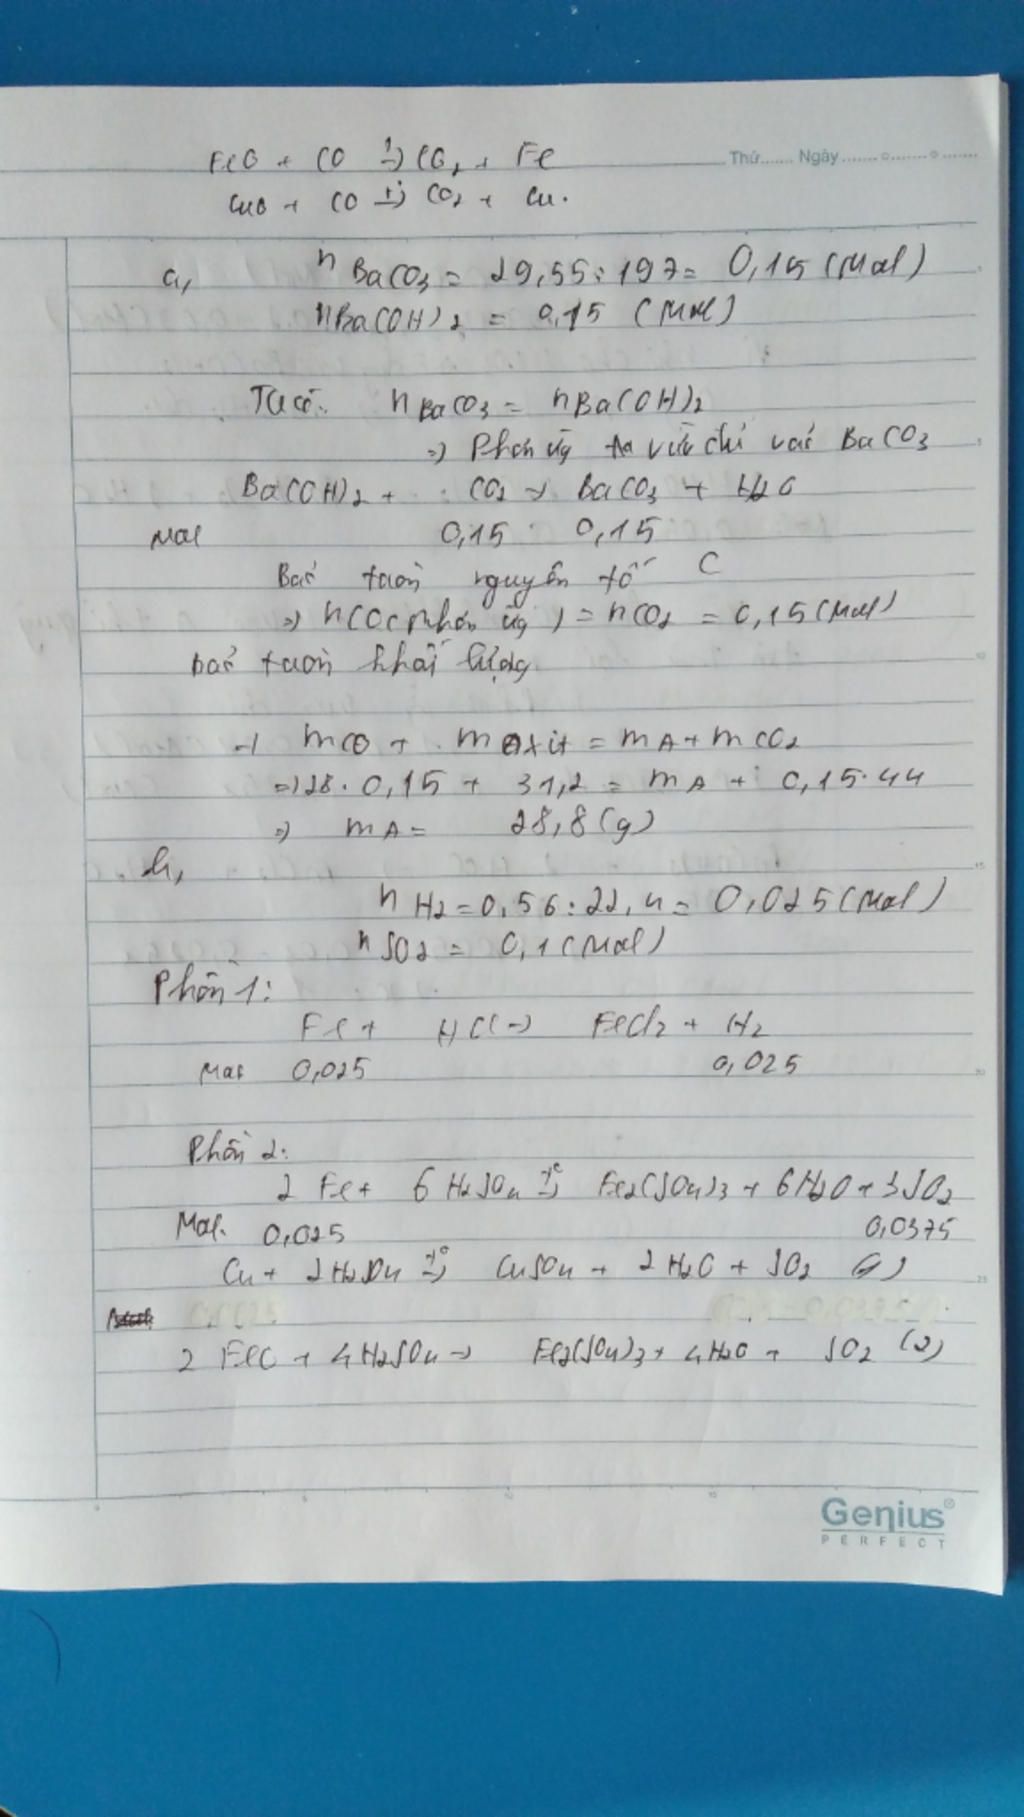 FeO + CO → CO2 + Fe
Thứ....... Ngày
CuO + CO → CO2 + Cu.
a, nBaCO3 = 29,55 : 197 = 0,15 (Mol)
nBa(OH)2 = 0,15 (Mol)
Ta có: nBaCO3 = nBa(OH)2
=> Phản ứng tạo vừa chỉ BaCO3
Ba(OH)2 + CO2 → BaCO3 + H2O
Mol 0,15 0,15
Bảo toàn nguyên tố C
=> nCO(phản ứng) = nCO2 = 0,15 (Mol)
bảo toàn khối lượng
→ mCO + moxit = mA + mCO2
=> 28. 0,15 + 31,2 = mA + 0,15.44
=> mA = 28,8 (g)
b,
nH2 = 0,56 : 22,4 = 0,025 (Mol)
nSO2 = 0,1 (Mol)
Phần 1:
Fe + HCl → FeCl2 + H2
Mol 0,025 0,025
Phần 2:
2 Fe + 6 H2SO4 t°→ Fe2(SO4)3 + 6H2O + 3SO2
Mol. 0,025 0,0375
Cu + 2H2SO4 t°→ CuSO4 + 2H2O + SO2 (1)
2 FeO + 4H2SO4 → Fe2(SO4)3 + 4H2O + SO2 (2)
Genius®
PERFECT